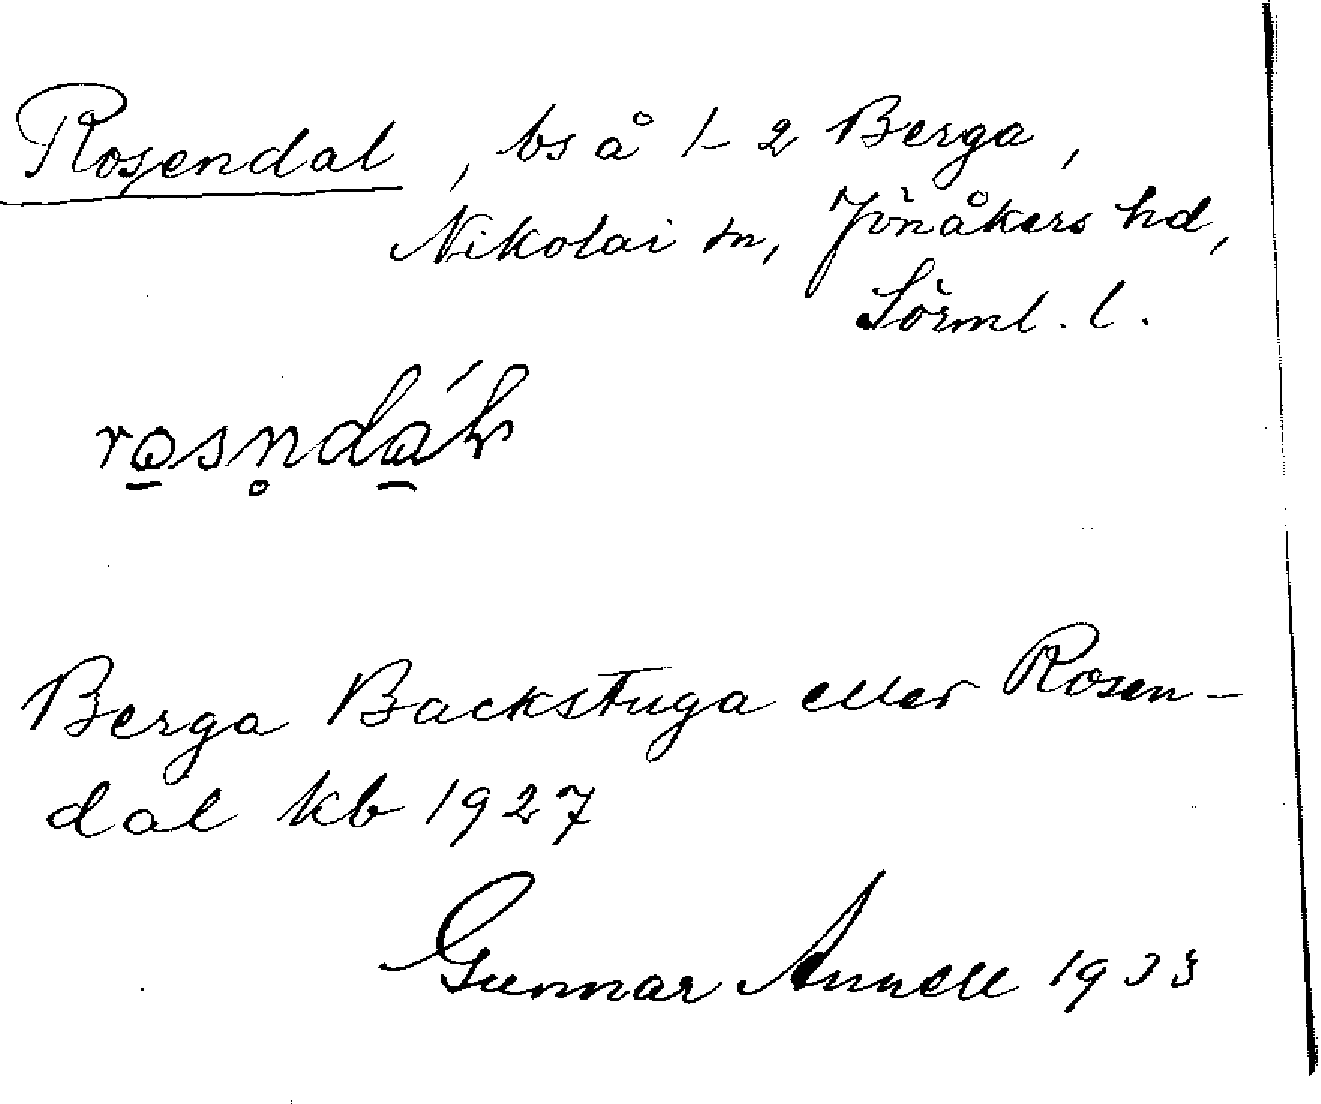 Rosendal, bs å 1-2 Berga,
Nikolai sn, Jönåkers hd,
Sörml. l.
Berga Backstuga eller Rosen-
dal kb 1927
Gunnar Annell 1933